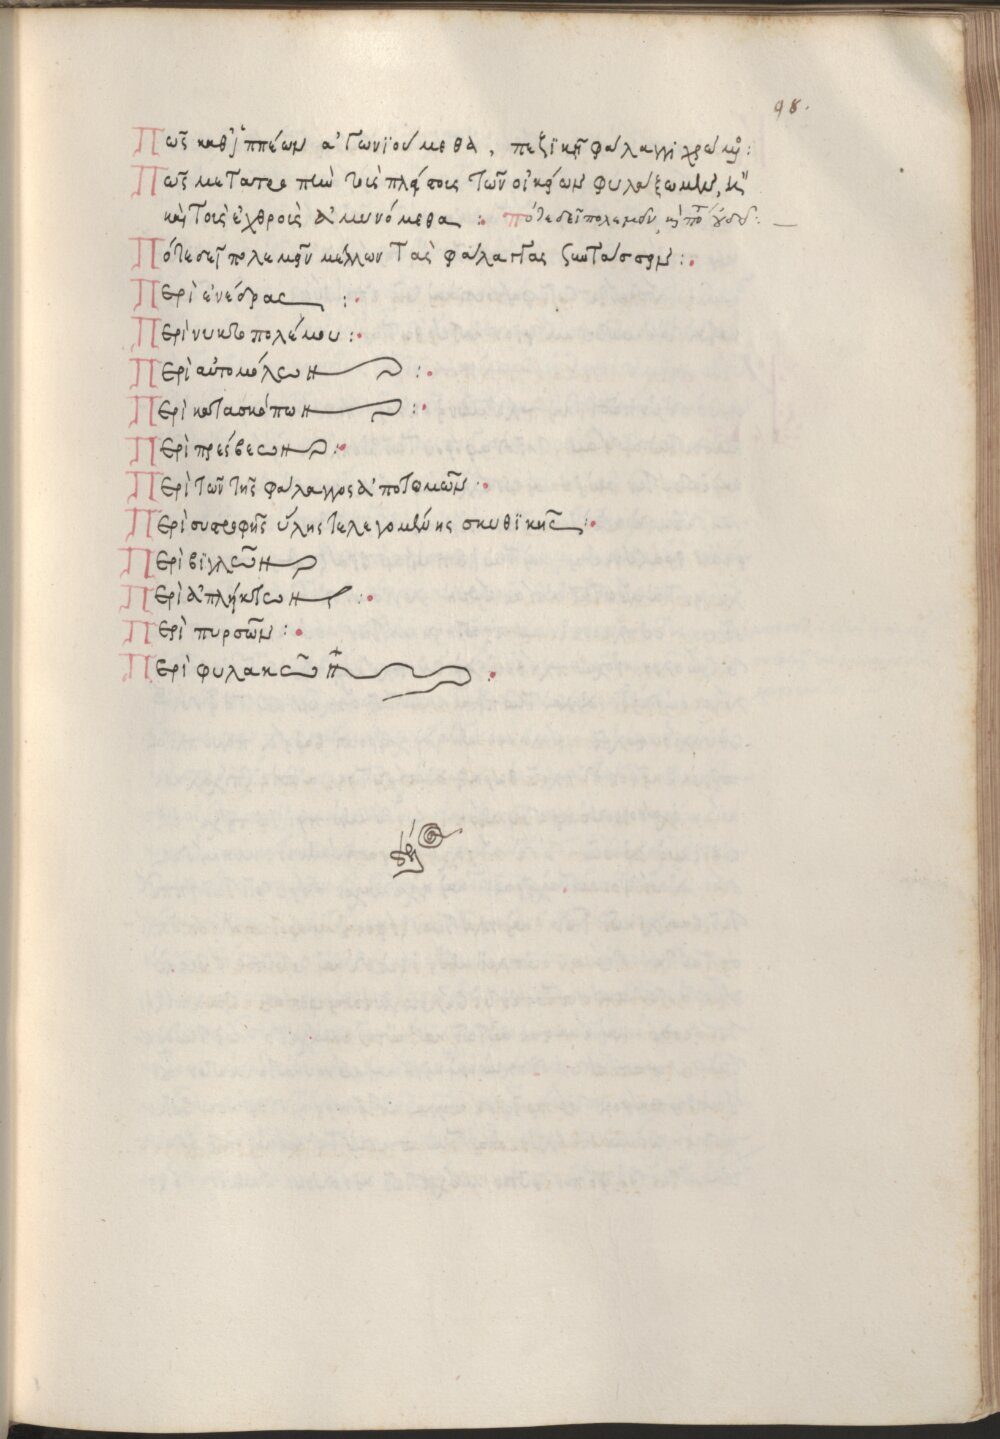 98.
Πῶς καθ' ἱππέων ἀγωνιούμεθα, πεζικῇ φάλαγγι χρώμενοι:
Πῶς μετὰ τροπὴν τοὺς πλείστους τῶν οἰκείων φυλάξωμεν, καὶ
καὶ τοὺς ἐχθροὺς ἀμυνόμεθα :. πότε δεῖ πολεμεῖν, καὶ πότε οὐ δεῖ:
Πότε δεῖ πολεμεῖν μέλλων τὰς φάλαγγας συντάσσειν :.
Περὶ ἐνέδρας :.
Περὶ νυκτοπολέμου :.
Περὶ αὐτομόλων :.
Περὶ κατασκόπων :.
Περὶ πρέσβεων :.
Περὶ τῶν τῆς φάλαγγος ἀποτομῶν :.
Περὶ συστροφῆς ὕλης τε λεγομένης σκυθικῆς :.
Περὶ βιγλῶν
Περὶ ἀπλήκτων :.
Περὶ πυρσῶν :.
Περὶ φυλακῶν :.